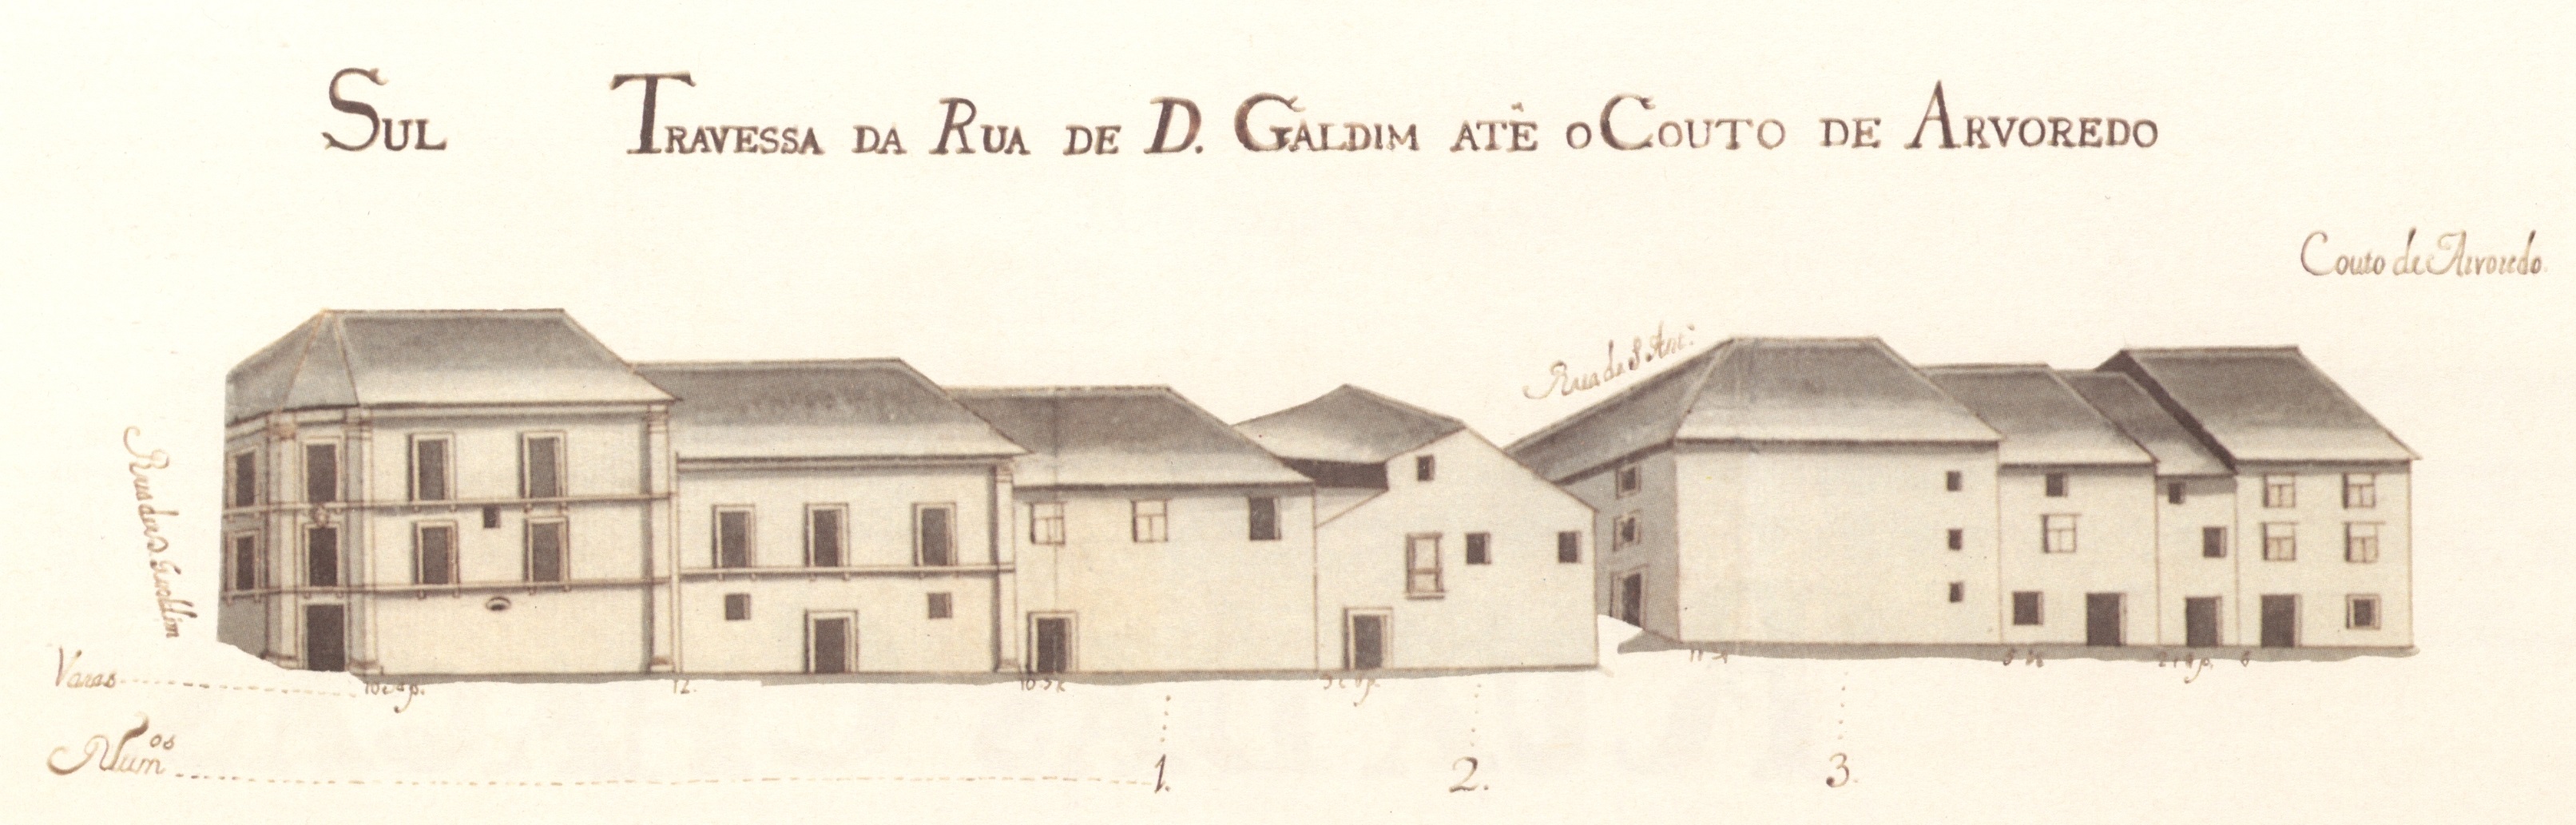 SUL TRAVESSA DA RUA DE D. GALDIM ATÊ O COUTO DE ARVOREDO
Couto de Arvoredo.
Rua de S. Ant.º
Rua de D. Gualdim
Varas
12.
Num.os 1. 2. 3.